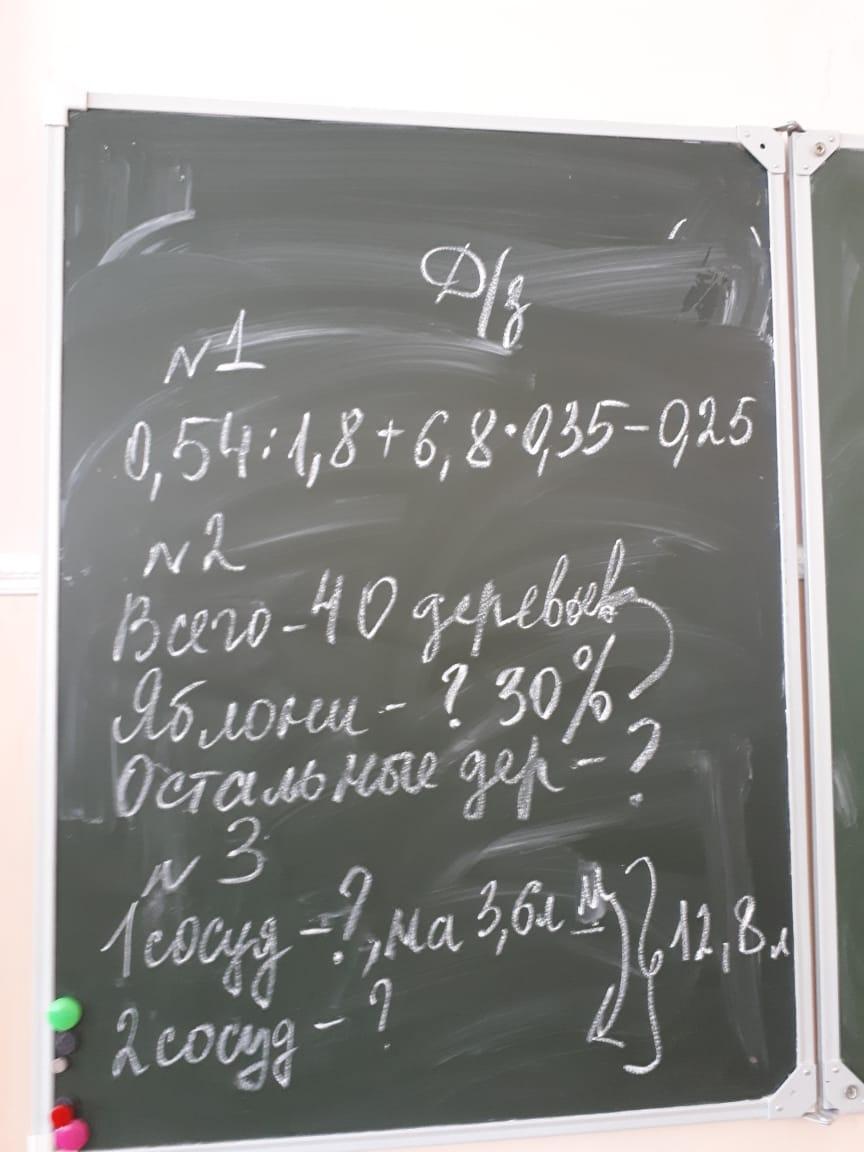 Д/з
N1
0,54:1,8+6,8·0,35-0,25
N2
Всего-40 деревьев
Яблони - ? 30%
Остальные дер - ?
N3
1 сосуд - ?, на 3,6л м
2 сосуд - ?
12,8л